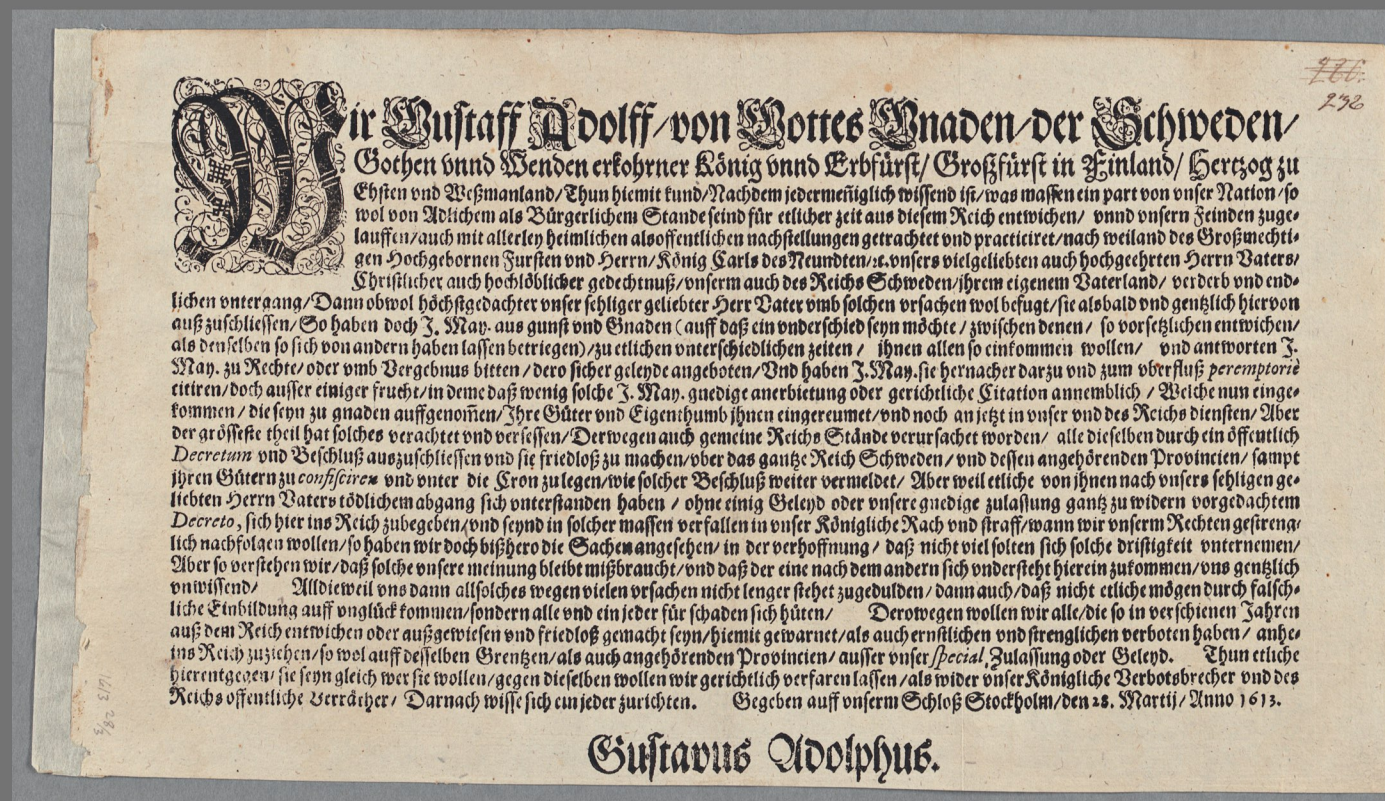 986.
232
Wir Gustaff Adolff/von Gottes Gnaden/der Schweden/
Gothen vnnd Wenden erkohrner König vnnd Erbfürst/ Großfürst in Finland/ Hertzog zu
Ehsten vnd Weßmanland/Thun hiemit kund/Nachdem jedermeñiglich wissend ist/was massen ein part von vnser Nation/so
wol von Adlichem als Bürgerlichem Stande seind für etlicher zeit aus diesem Reich entwichen/ vnnd vnsern Feinden zuge-
lauffen/auch mit allerley heimlichen als offentlichen nachstellungen getrachtet vnd practiciret/nach weiland des Großmechti-
gen Hochgebornen Fursten vnd Herrn/König Carls des Neundten/ꝛc.vnsers vielgeliebten auch hochgeehrten Herrn Vaters/
Christlicher auch hochlöblicher gedechtnuß/vnserm auch des Reichs Schweden/jhrem eigenem Vaterland/ verderb vnd end-
lichen vntergang/Dann obwol höchstgedachter vnser sehliger geliebter Herr Vater vmb solchen vrsachen wol befugt/sie alsbald vnd gentzlich hiervon
auß zuschliessen/So haben doch J. May. aus gunst vnd Gnaden (auff daß ein vnderschied seyn möchte/ zwischen denen/ so vorsetzlichen entwichen/
als denselben so sich von andern haben lassen betriegen)/zu etlichen vnterschiedlichen zeiten/ ihnen allen so einkommen wollen/ vnd antworten J.
May. zu Rechte/oder vmb Vergebnus bitten/dero sicher geleyde angeboten/Vnd haben J.May.sie hernacher darzu vnd zum vberfluß peremptoriè
citiren/doch ausser einiger frucht/in deme daß wenig solche J. May. gnedige anerbietung oder gerichtliche Citation annemblich/ Welche nun einge-
kommen/die seyn zu gnaden auffgenom̃en/Jhre Güter vnd Eigenthumb jhnen eingereumet/vnd noch an jetzt in vnser vnd des Reichs diensten/ Aber
der grösseste theil hat solches verachtet vnd versessen/Derwegen auch gemeine Reichs Stände verursachet worden/ alle dieselben durch ein öffentlich
Decretum vnd Beschluß auszuschliessen vnd sie friedloß zu machen/vber das gantze Reich Schweden/vnd dessen angehörenden Provincien/ sampt
jhren Gütern zu confisciren vnd vnter die Cron zu legen/wie solcher Beschluß weiter vermeldet/ Aber weil etliche von jhnen nach vnsers sehligen ge-
liebten Herrn Vaters tödlichem abgang sich vnterstanden haben/ ohne einig Geleyd oder vnsere gnedige zulassung gantz zu widern vorgedachtem
Decreto, sich hier ins Reich zubegeben/vnd seynd in solcher massen verfallen in vnser Königliche Rach vnd straff/wann wir vnserm Rechten gestreng-
lich nachfolgen wollen/so haben wir doch bißhero die Sachen angesehen/ in der verhoffnung/ daß nicht viel solten sich solche dristigkeit vnternemen/
Aber so verstehen wir/daß solche vnsere meinung bleibt mißbraucht/vnd daß der eine nach dem andern sich vndersteht hierein zukommen/vns gentzlich
vnwissend/ Alldieweil vns dann allsolches wegen vielen vrsachen nicht lenger stehet zugedulden/dann auch/daß nicht etliche mögen durch falsch-
liche Einbildung auff vnglück kommen/sondern alle vnd ein jeder für schaden sich hüten/ Derowegen wollen wir alle/die so in verschienen Jahren
auß dem Reich entwichen oder außgewiesen vnd friedloß gemacht seyn/hiemit gewarnet/als auch ernstlichen vnd strenglichen verboten haben/ anhe-
ins Reich zuziehen/so wol auff desselben Grentzen/als auch angehörenden Provincien/ausser vnser special, Zulassung oder Geleyd. Thun etliche
hierentgegen/sie seyn gleich wer sie wollen/gegen dieselben wollen wir gerichtlich verfaren lassen/als wider vnser Königliche Verbotsbrecher vnd des
Reichs offentliche Verräther/ Darnach wisse sich ein jeder zurichten. Gegeben auff vnserm Schloß Stockholm/den 28. Martij/Anno 1613.
Gustavus Adolphus.
1613 28/3